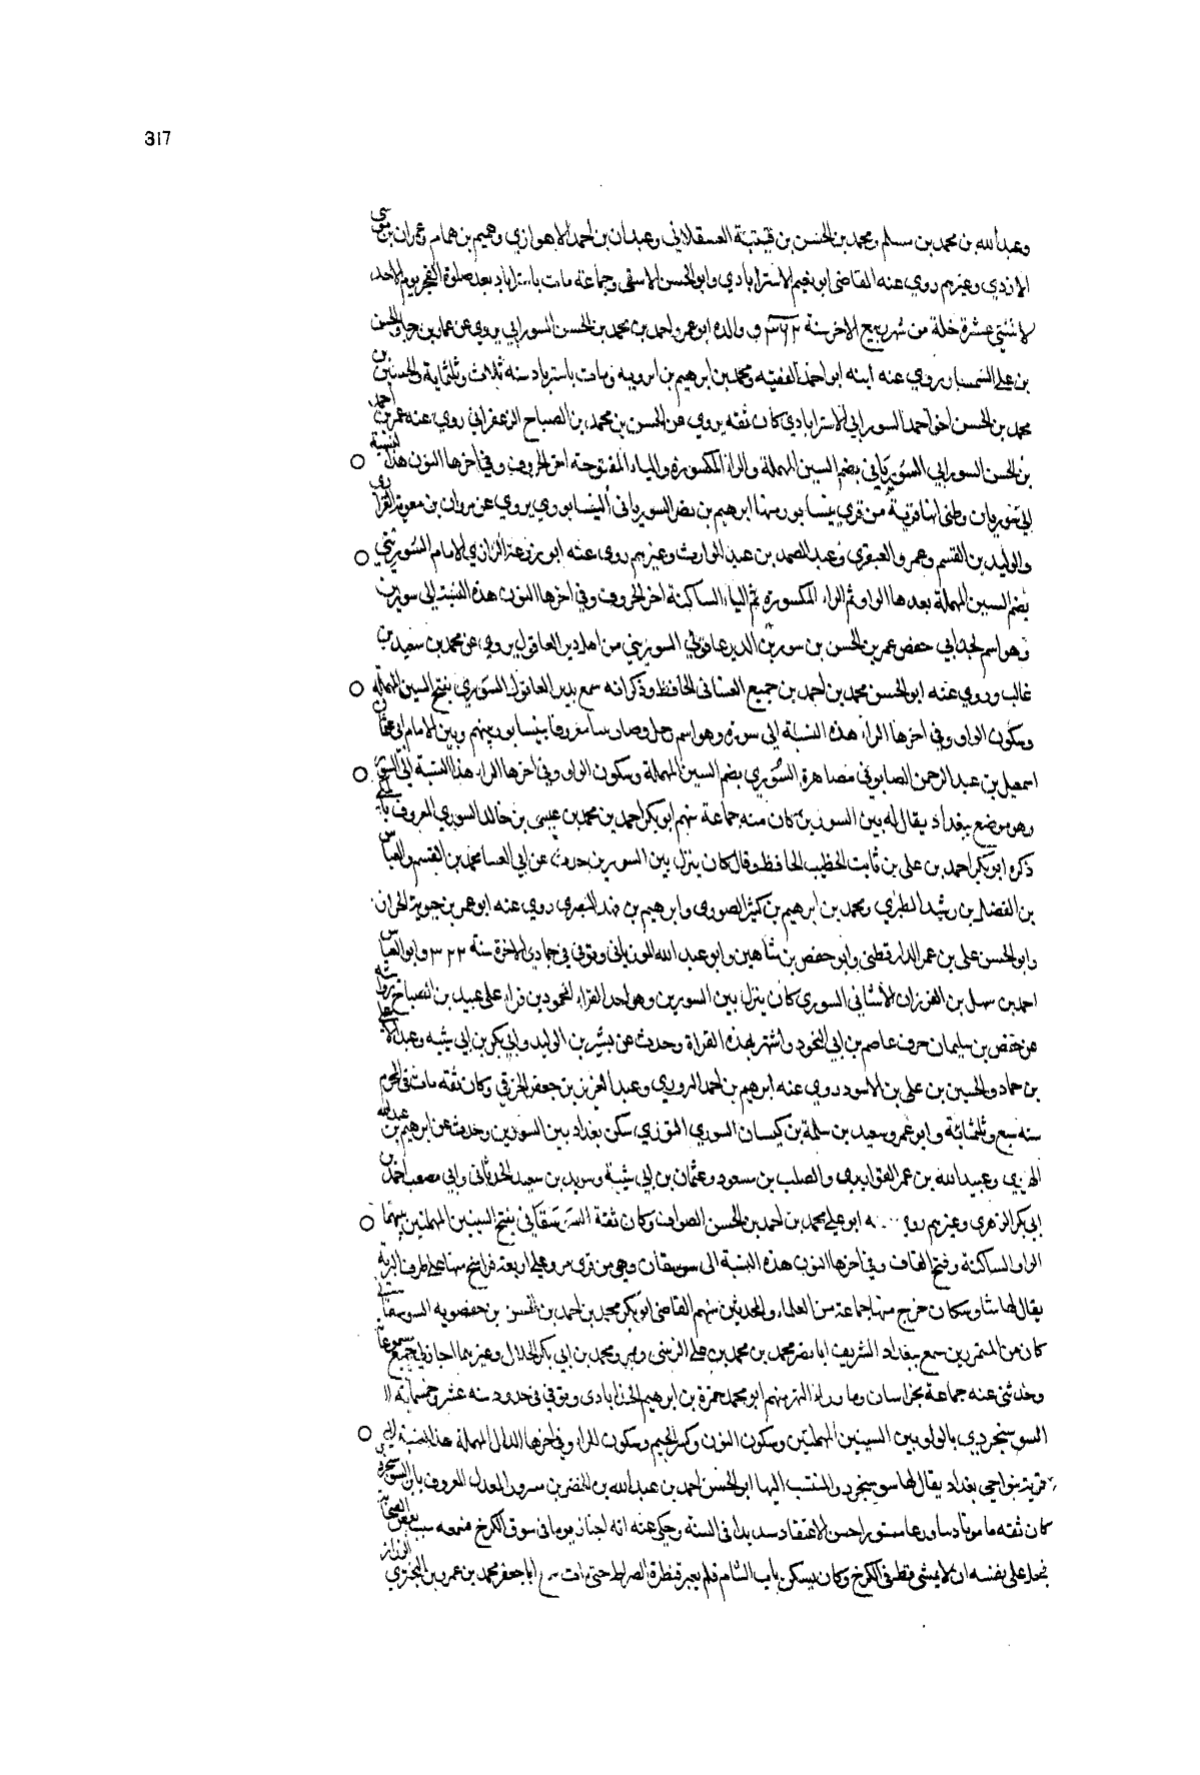 317
وعبدالله بن محمد بن سلم ومحمد بن الحسن بن قتيبة العسقلاني وعبدان بن احمد الاهوازي وهميم بن همام وعمران بن موسى
الازدي وغيرهم روي عنه القاضى ابو نعيم الاسترابادي وابو الحسن الاشقى وجماعة مات باستراباد بعد صلوة الفجر يوم الاحد
لاثنتي عشرة خلة من شهر ربيع الاخر سنة ٣٦٢ ووالده ابو عمرو احمد بن محمد بن الحسن السورابي يروي عن عمار بن رجا والحسن
بن علي السمسار روي عنه ابنه ابو احمد الفقيه ومحمد بن ابرهيم بن ابرويه ومات باستراباد سنة ثلاث وثلثماية والحسين بن
محمد بن الحسن اخو احمد السورابي الاسترابادي كان ثقة يروي عن الحسن بن محمد بن الصباح الزعفراني روي عنه عمر بن احمد
بن الحسن السورابي السوريانى بضم السين المهملة والراء المكسورة والياء المفتوحة اخر الحروف وفي اخرها النون هذه النسبة
الى سوريان وظنى انها قرية من قري نيسابور منها ابرهيم بن نصر السوريانى النيسابوري يروي عن مروان بن معوية الفزاري
والوليد بن القسم وعمرو العبقري وعبد الصمد بن عبد الوارث وغيرهم روي عنه ابو زرعة الرازي الامام السوريني
بضم السين المهملة بعدها الواو ثم الراء المكسورة ثم الياء الساكنة اخر الحروف وفي اخرها النون هذه النسبة الى سورين
وهو اسم لجد ابي حفص عمر بن الحسن بن سورين الديرعاقولي السوريني من اهل دير العاقول يروي عن محمد بن سعيد بن
غالب وروي عنه ابو الحسن محمد بن احمد بن جميع الغسانى الحافظ وذكر انه سمع بدير العاقول السوري بفتح السين المهملة
وسكون الواو وفي اخرها الراء هذه النسبة الى سورة وهو اسم رجل وصار بيتا معروفا بنيسابور بينهم وبين الامام ابي عثمان
اسمعيل بن عبد الرحمن الصابوني مصاهرة السوري بضم السين المهملة وسكون الواو وفي اخرها الراء هذه النسبة الى
وهو موضع ببغداد يقال له بين السورين كان منه جماعة منهم ابو بكر احمد بن محمد بن عيسى بن خالد السوري المعروف
ذكره ابو بكر احمد بن على بن ثابت الخطيب الحافظ وقال كان ينزل بين السورين حدث عن ابي العينا محمد بن القسم والعباس
بن الفضل بن رشيد الطبري ومحمد بن ابرهيم بن كثير الصوري وابرهيم بن فهد البصري روي عنه ابو عمر بن حيوية الخزاز
وابو الحسن على بن عمر الدارقطنى وابو حفص بن شاهين وابو عبد الله المرزبانى وتوفي في جمادي الاخرة سنة ٣٢٢ وابو العباس
احمد بن سهل بن الفيرزان الاشنانى السوري كان ينزل بين السورين وهو احد القراء المجودين قرا على عبيد بن الصباح
عن حفص بن سليمان حرف عاصم بن ابي النجود واشتهر بهذه القراة وحدث عن بشر بن الوليد وابي بكر بن ابي شيبه وعبد الاعلى
بن حماد والحسين بن على بن الاسود روي عنه ابرهيم بن احمد البزوري وعبد العزيز بن جعفر الخرقي وكان ثقه مات فى المحرم
سنه سبع وثلثمائة وابو عمرو سعيد بن سلمة بن كيسان السوري التوزي سكن بغداد بين السورين وحدث عن ابرهيم بن عبدالله
الهروي وعبيد الله بن عمر القواريري والصلت بن مسعود وعثمان بن ابي شيبة وسويد بن سعيد الحدثانى وابي مصعب احمد بن
ابي بكر الزهرى وغيرهم روي ابو على محمد بن احمد بن الحسن الصواف وكان ثقة السوسقاني بفتح السينين المهملتين بينهما
الواو الساكنة وفتح القاف وفي اخرها النون هذه النسبة الى سوسقان وهي من قرى مرو على اربعة فراسخ منها على طرف البرية
يقال لها شاوسكان خرج منها جماعة من العلماء والمحدثين منهم القاضى ابو بكر محمد بن احمد بن الحسن بن حفصويه السوسقاني
كان من المتميزين سمع ببغداد الشريف ابا نصر محمد بن محمد بن على الزينبى وبمرو محمد بن ابي بكر الخلال وغيرهما اجاز لي جميع مسموعاته
وحدثنى عنه جماعة بخراسان وما وراء النهر منهم ابو محمد حمزة بن ابرهيم الخداابادى وتوفي في حدود سنه عشر وخمسماية
السوسنجردي بالواو بين السينين المهملتين وسكون النون وكسر الجيم وسكون الراء وفي اخرها الدال المهملة هذه النسبة الى
قرية بنواحى بغداد يقال لها سوسنجرد والمنتسب اليها ابو الحسن احمد بن عبدالله بن الخضر بن مسرور المعدل المعروف بابن السوسنجردي
كان ثقه مامونا دينا ورعا مستورا حسن الاعتقاد شديدا فى السنة وحكي عنه انه اجتاز يوما فى سوق الكرخ فسمعه سب بعض الصحابة
فجعل على نفسه ان لا يمشى قط فى الكرخ وكان يسكن باب الشام فلم يعبر قنطرة الصراط حتى مات سمع ابا جعفر محمد بن عمرو بن البختري الرزاز